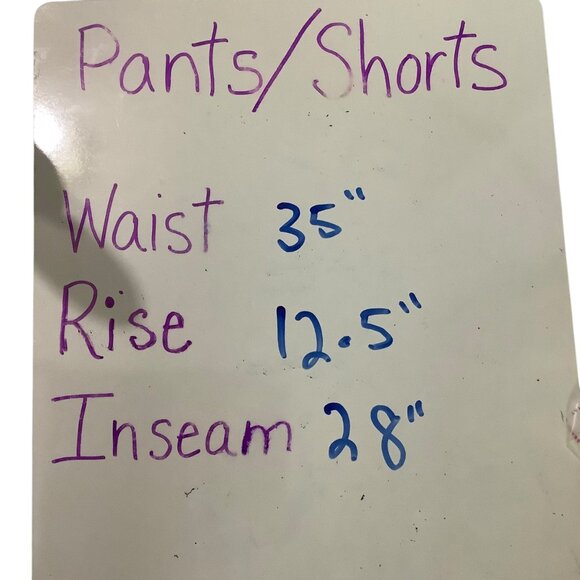 Pants/Shorts
Waist 35"
Rise 12.5"
Inseam 28"